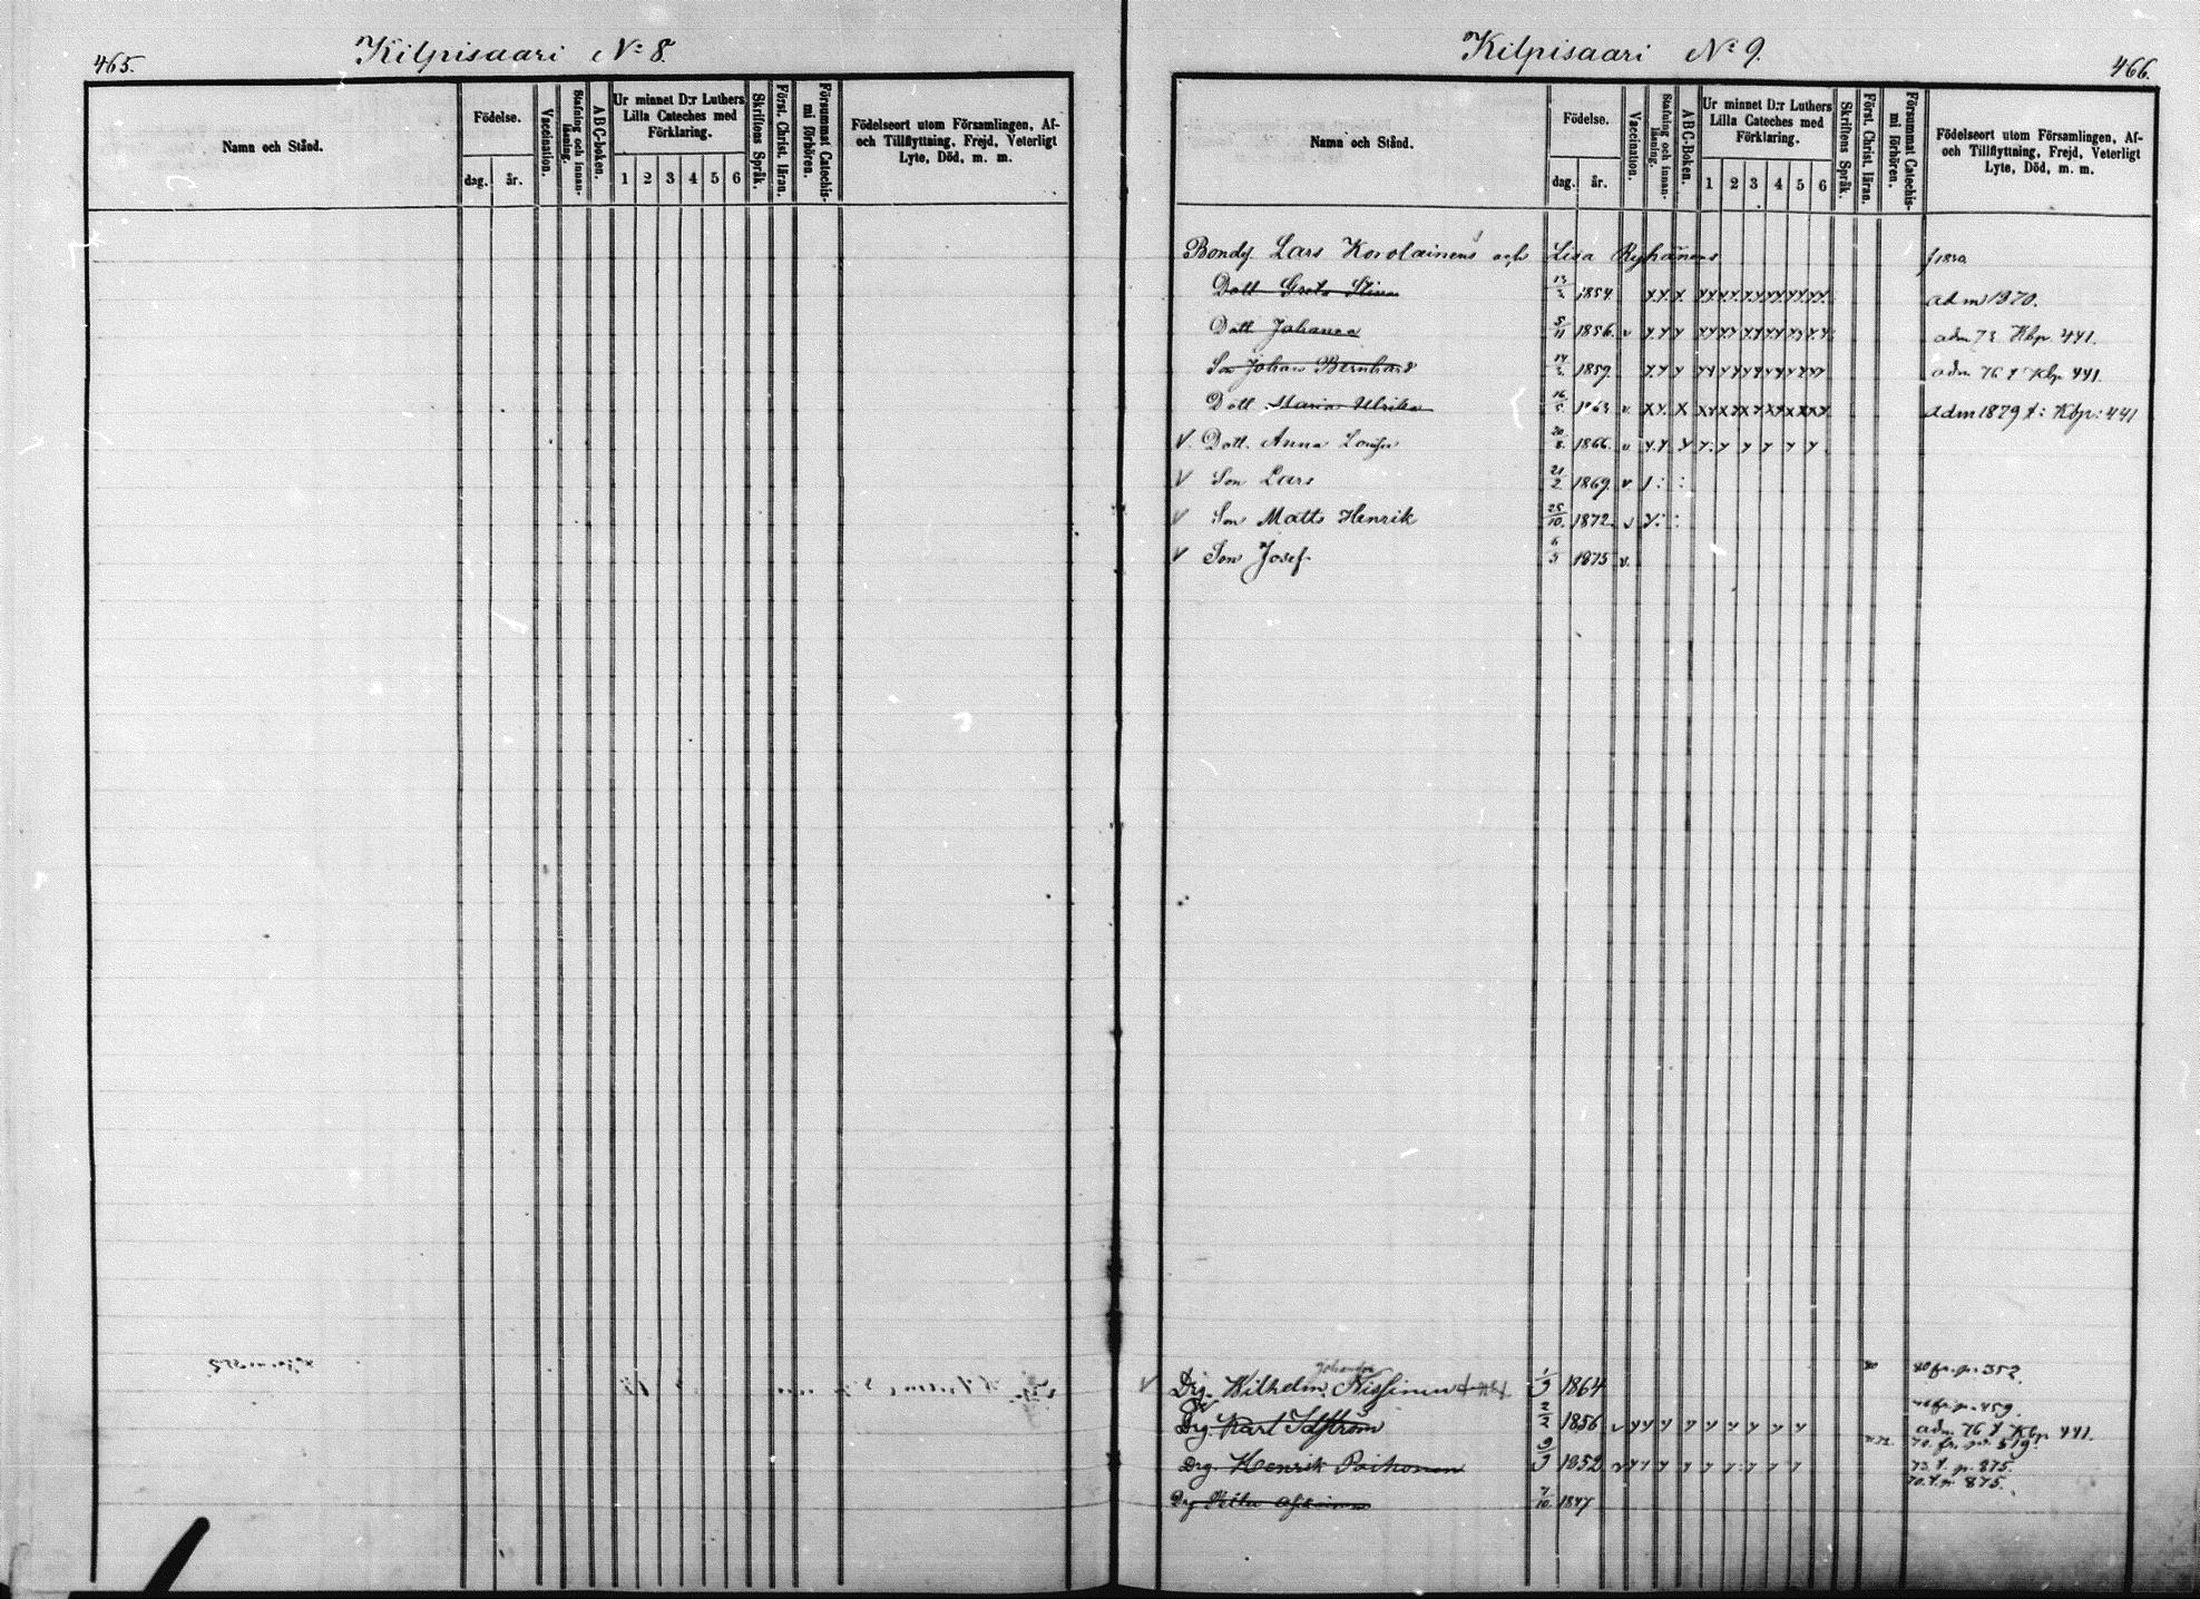 465.
Kilpisaari No 8.
Namn och Stånd.
Födelse.
dag. år.
Vaccination.
Stafning och innan-läsning.
ABC-boken.
Ur minnet D:r Luthers Lilla Cateches med Förklaring.
1 2 3 4 5 6
Skriftens Språk.
Först. Christ. läran.
Försummat Catechis-mi förhören.
Födelseort utom Församlingen, Af-
och Tillflyttning, Frejd, Veterligt
Lyte, Död, m. m.
Kilpisaari No 9.
466.
Namn och Stånd.
Födelse.
dag. år.
Vaccination.
Stafning och innan-läsning.
ABC-Boken.
Ur minnet D:r Luthers Lilla Cateches med Förklaring.
1 2 3 4 5 6
Skriftens Språk.
Först. Christ. läran.
Försummat Catechis-mi förhören.
Födelseort utom Församlingen, Af-
och Tillflyttning, Frejd, Veterligt
Lyte, Död, m. m.
Bondf. Lars Korolainens och Lisa Ryhänens
Dott Greta Stina 1854. adm 1870.
Dott Johanna 5/11 1856. v adm 73 Kbp. 441.
Son Johan Bernhard 1859. adm 76 t Kbp 441.
Dott Maria Ulrika 16/5 1863 v. adm 1879 t: Kbp: 441
V. Dott. Anna Lovisa 20/8. 1866. v
V Son Lars 21/2 1869. v
V Son Matts Henrik 25/10. 1872. v
V Son Josef 6/5 1875 v.
80 fr. p. 352.
V Drg. Wilhelm Johannes Nissinen 1/9 1864
p. 459.
Drg. Karl Idström 2/2 1856 v adm 76 t Kbp 441.
70. fr. p. 519.
Drg. Henrik Poikonen 9/9 1852 v 73 t. p. 875.
70. t. p. 875.
Drg 7/10. 1847